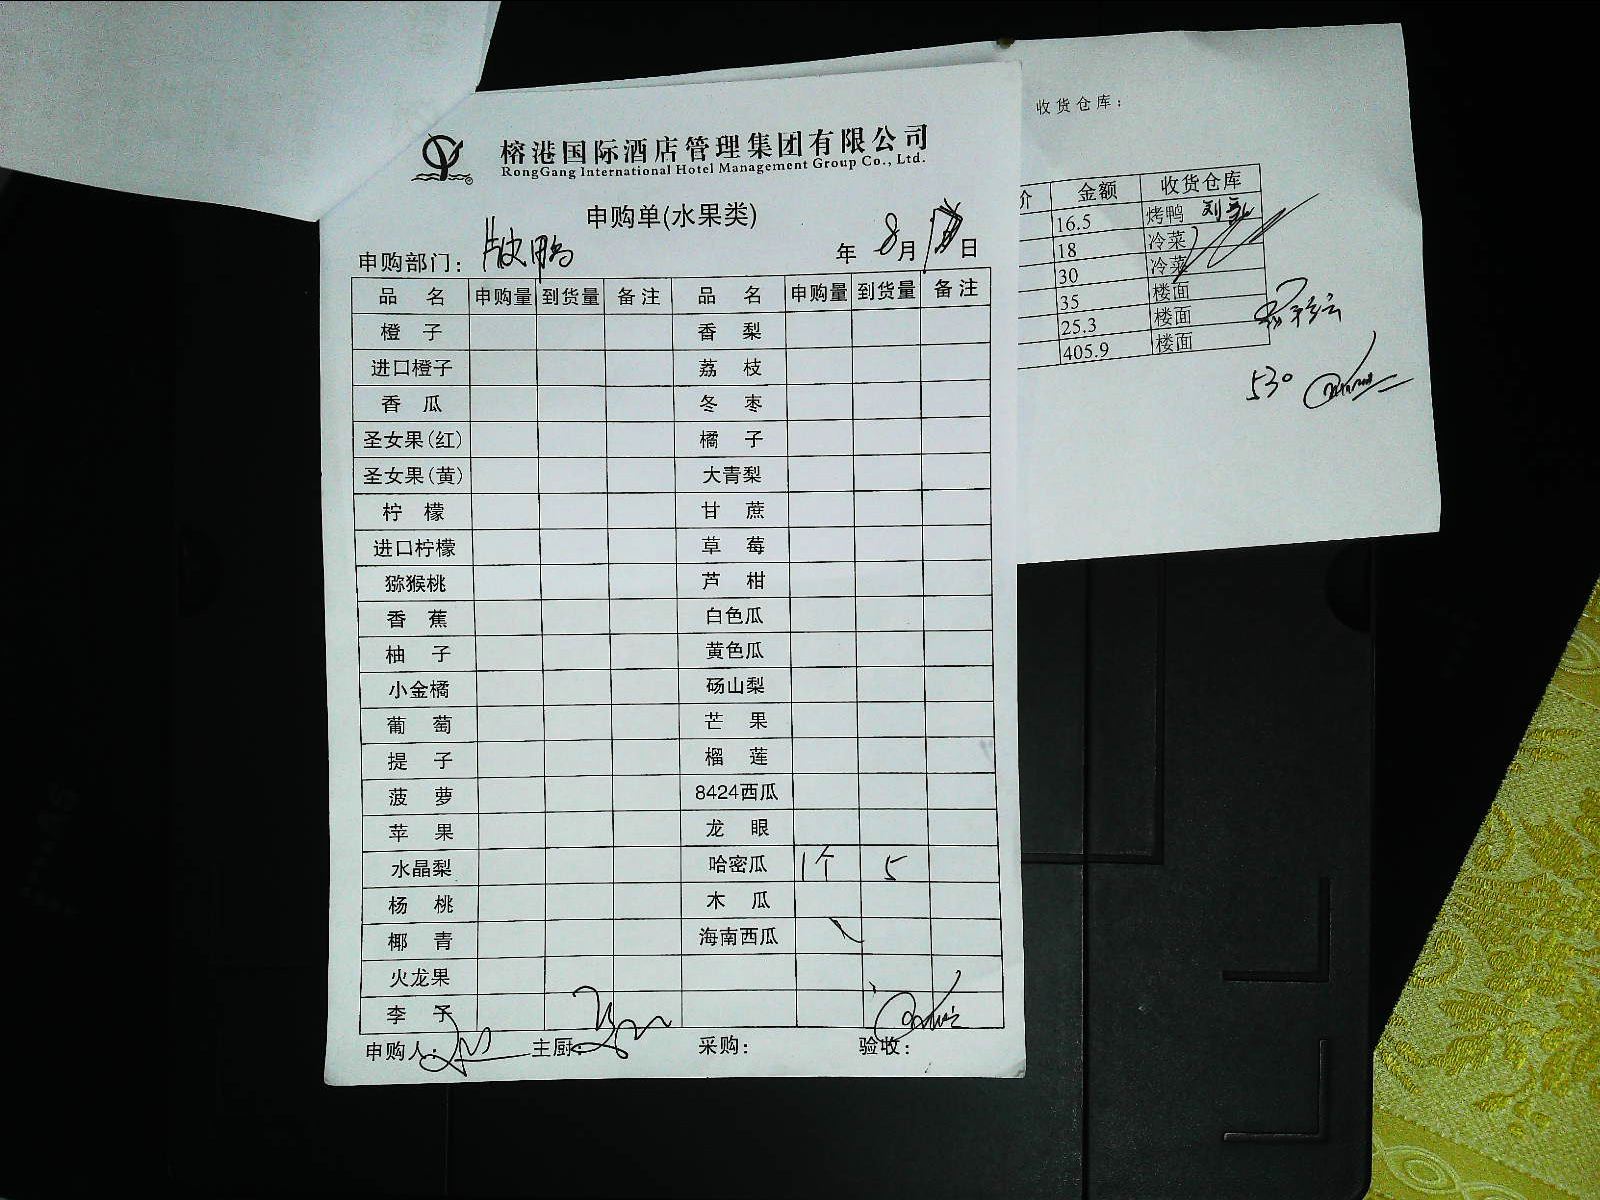 榕港国际酒店管理集团有限公司
RongGang International Hotel Management Group Co., Ltd.
申购单(水果类)
申购部门： 年 8月 日
品名 申购量 到货量 备注 品名 申购量 到货量 备注
橙子 香梨
进口橙子 荔枝
香瓜 冬枣
圣女果(红) 橘子
圣女果(黄) 大青梨
柠檬 甘蔗
进口柠檬 草莓
猕猴桃 芦柑
香蕉 白色瓜
柚子 黄色瓜
小金橘 砀山梨
葡萄 芒果
提子 榴莲
菠萝 8424西瓜
苹果 龙眼
水晶梨 哈密瓜 1个 5
杨桃 木瓜
椰青 海南西瓜
火龙果
李子
申购人： 主厨： 采购： 验收：
收货仓库：
价 金额 收货仓库
16.5 烤鸭
18 冷菜
30 冷菜
35 楼面
25.3 楼面
405.9 楼面
530